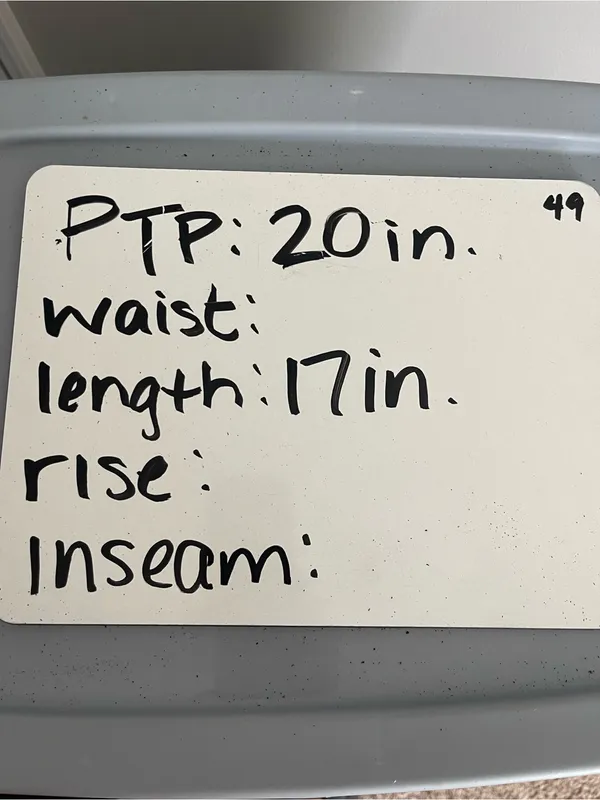 49
PTP: 20in.
waist:
length: 17in.
rise:
Inseam: